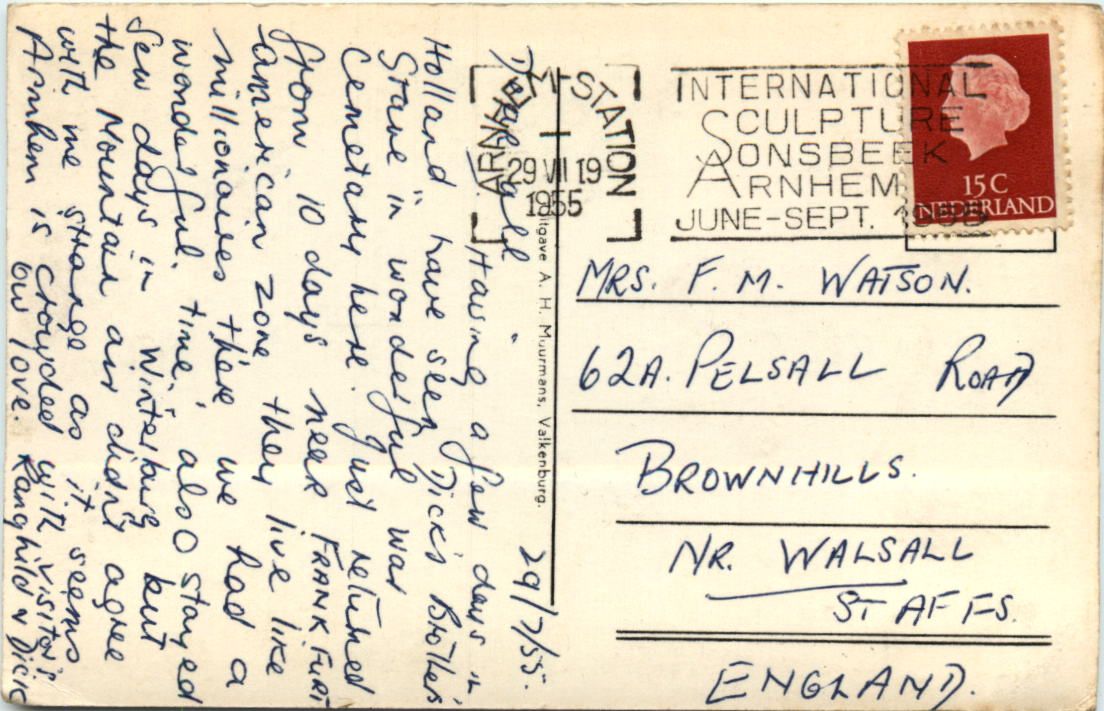 29/7/55.
Dear
Having a few days in
Holland have seen Dick's Brother's
Grave in wonderful War
Cemetary here. Just returned
from 10 days near FRANKFURT
American zone they live like
millionaires there we had a
wonderful time, also stayed
few days in Winterburg but
the Mountain air didn't agree
with me strange as it seems
Arnhem is crowded with visitors
our love. Ranghild & Dick
Uitgave A. H. Muurmans, Valkenburg.
ARNHEM-STATION
29 VII 19
1955
INTERNATIONAL
SCULPTURE
SONSBEEK
ARNHEM
JUNE-SEPT. 1955
15 C
NEDERLAND
MRS. F. M. WATSON.
62A. PELSALL ROAD
BROWNHILLS.
NR. WALSALL
STAFFS.
ENGLAND.